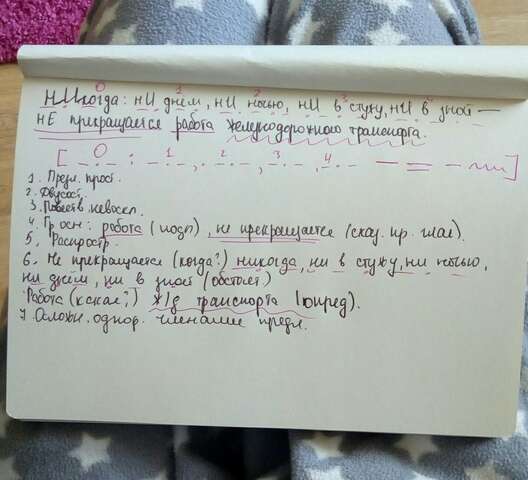 никогда: ни днём, ни ночью, ни в стужу, ни в зной —
не прекращается работа железнодорожного транспорта.
[ О : 1, 2, 3, 4 — = — ]
1. Предл. прост.
2. Двусост.
3. Повеств. невоскл.
4. Гр. осн: работа (подл), не прекращается (сказ. пр. глаг).
5. Распростр.
6. Не прекращается (когда?) никогда, ни в стужу, ни ночью,
ни днём, ни в зной (обстоят)
Работа (какая?) ж/д транспорта (опред).
7 Осложн. однор. членами предл.